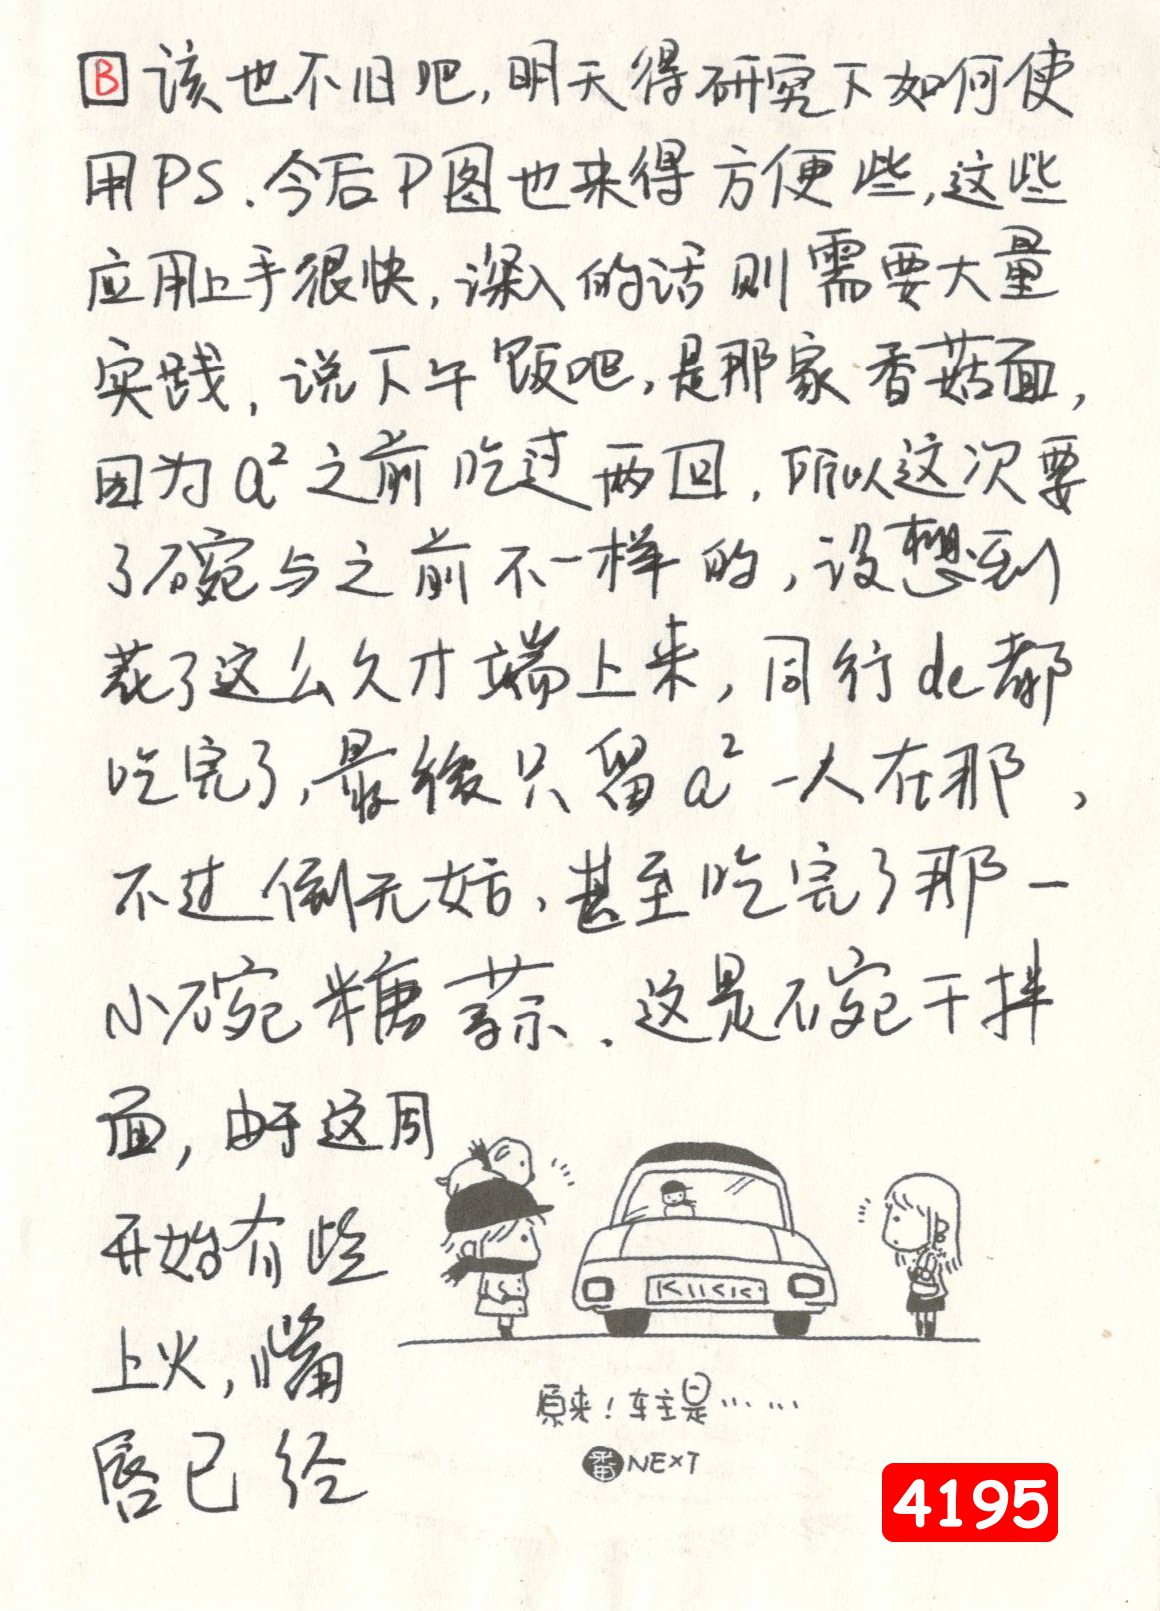 B 该也不旧吧,明天得研究下如何使
用PS.今后P图也来得方便些,这些
应用上手很快,深入的话则需要大量
实践,说下午饭吧,是那家香菇面,
因为a²之前吃过两回,所以这次要
了碗与之前不一样的,没想到
花了这么久才端上来,同行de都
吃完了,最後只留a²一人在那,
不过倒无妨,甚至吃完了那一
小碗糖蒜.这是碗干拌
面,由于这周
开始有些
上火,嘴
唇已经
KIICK
原来!车主是……
番NEXT
4195